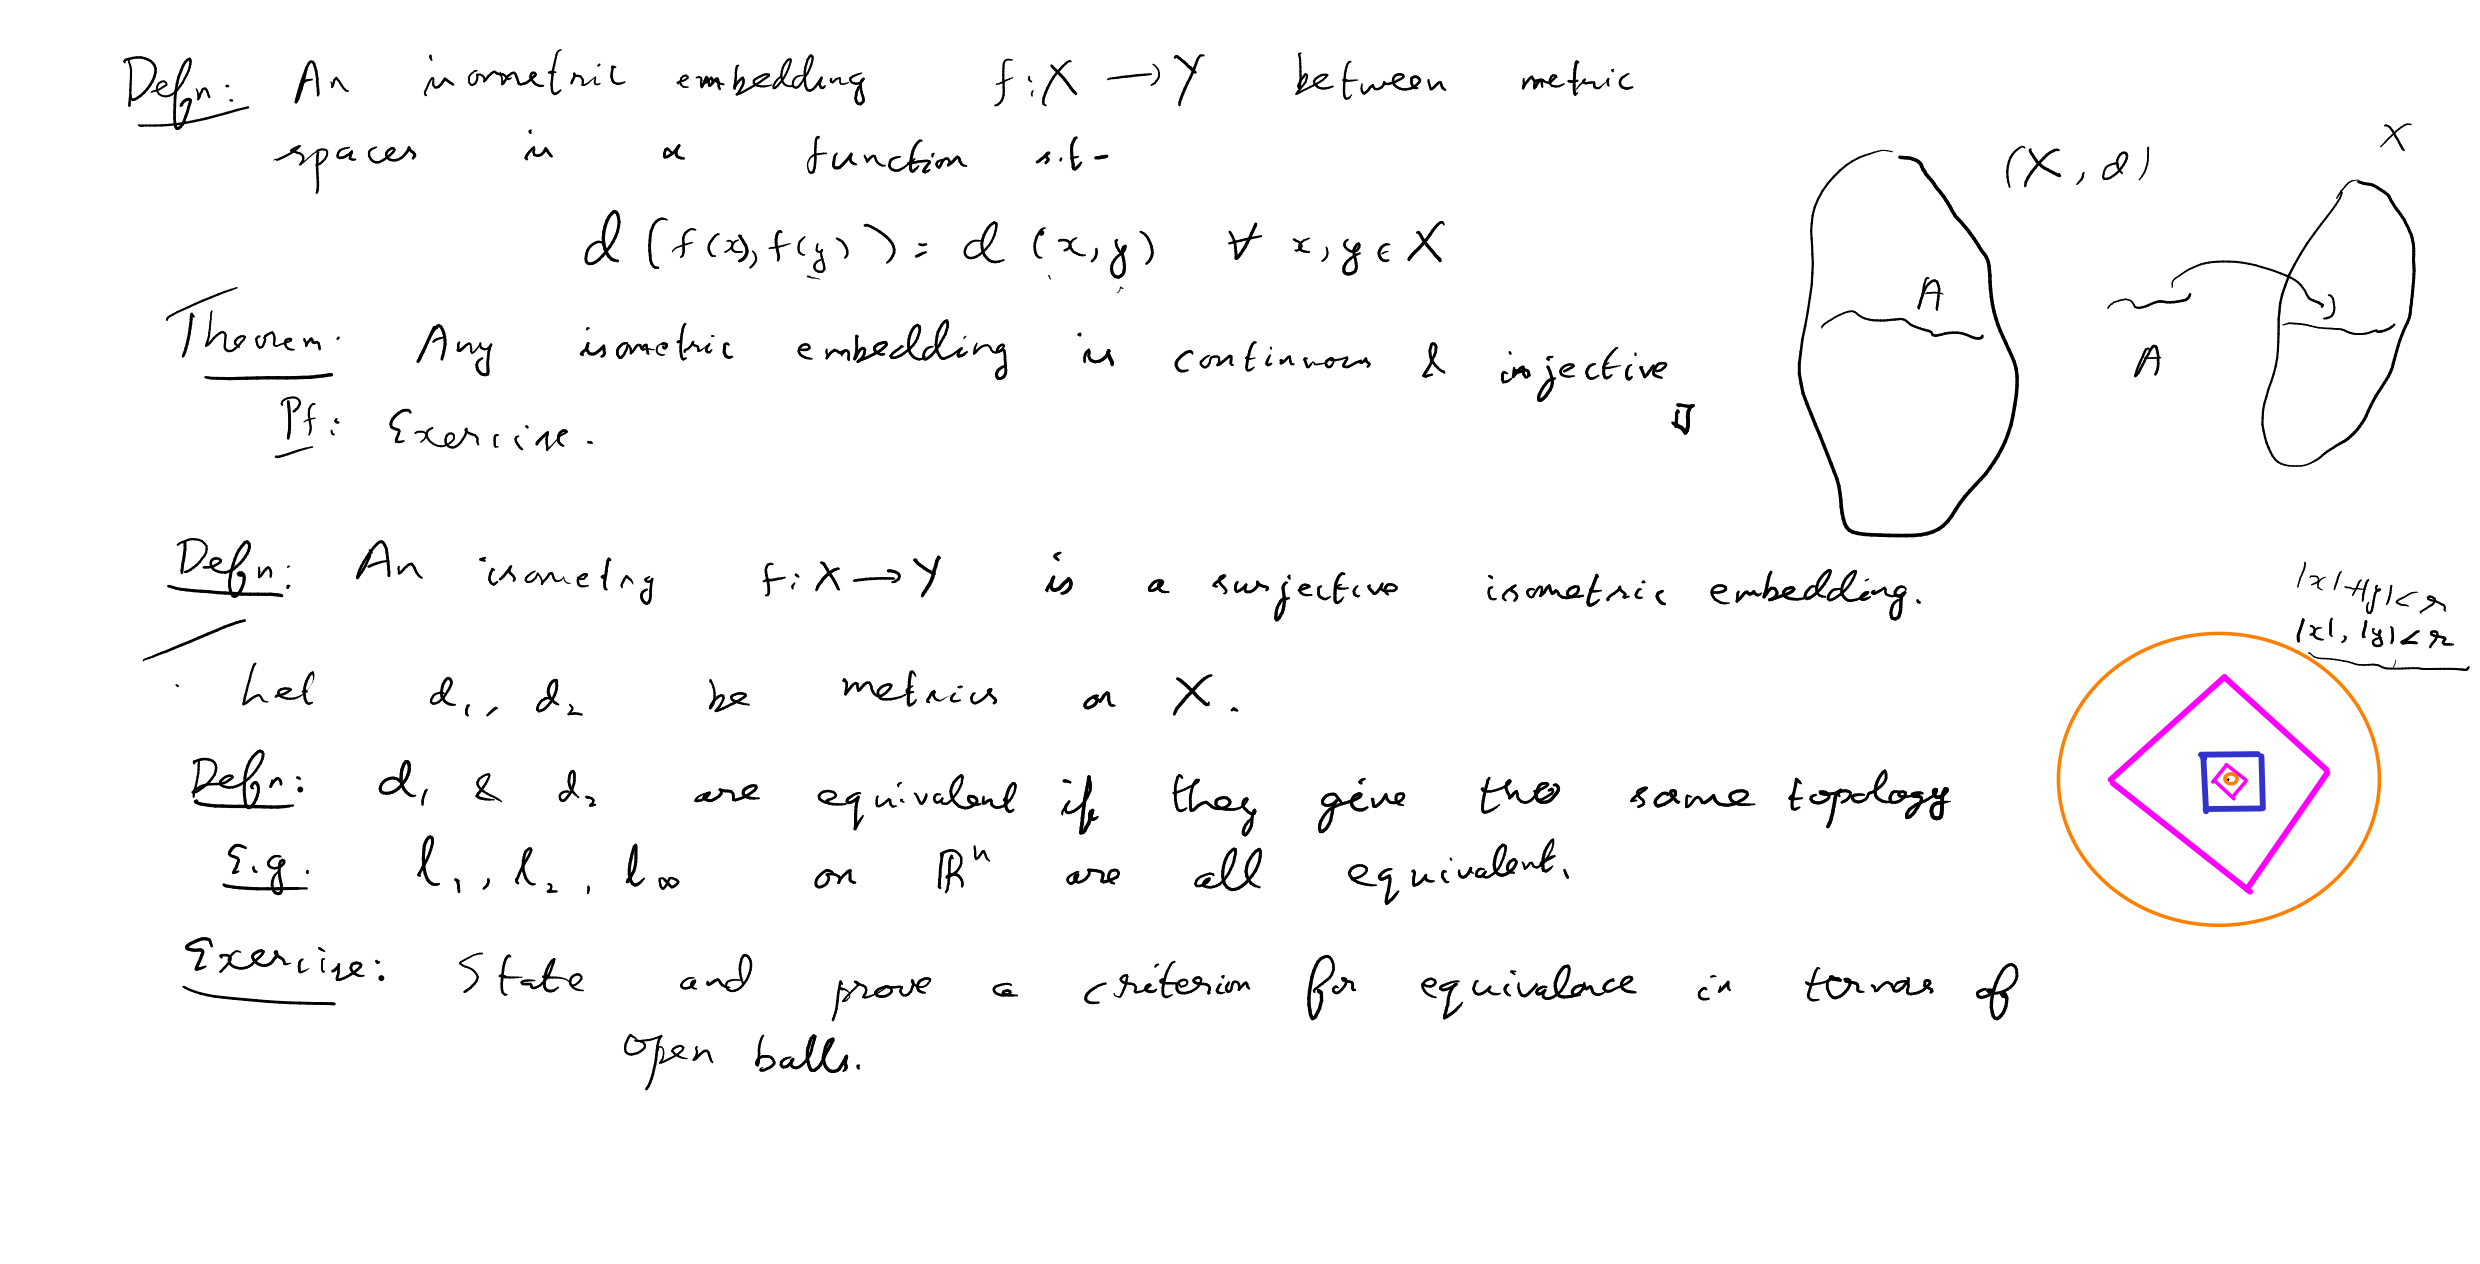 Defn: An isometric embedding f: X → Y between metric
spaces is a function s.t.
d(f(x), f(y)) = d(x, y) ∀ x, y ∈ X
(X, d)
X
A
A
Theorem. Any isometric embedding is continuous & injective □
Pf: Exercise.
Defn: An isometry f: X → Y is a surjective isometric embedding.
|x|+|y|<r
|x|, |y|<r
Let d₁, d₂ be metrics on X.
Defn: d₁ & d₂ are equivalent if they give the same topology
E.g. l₁, l₂, l∞ on ℝⁿ are all equivalent.
Exercise: State and prove a criterion for equivalence in terms of
open balls.